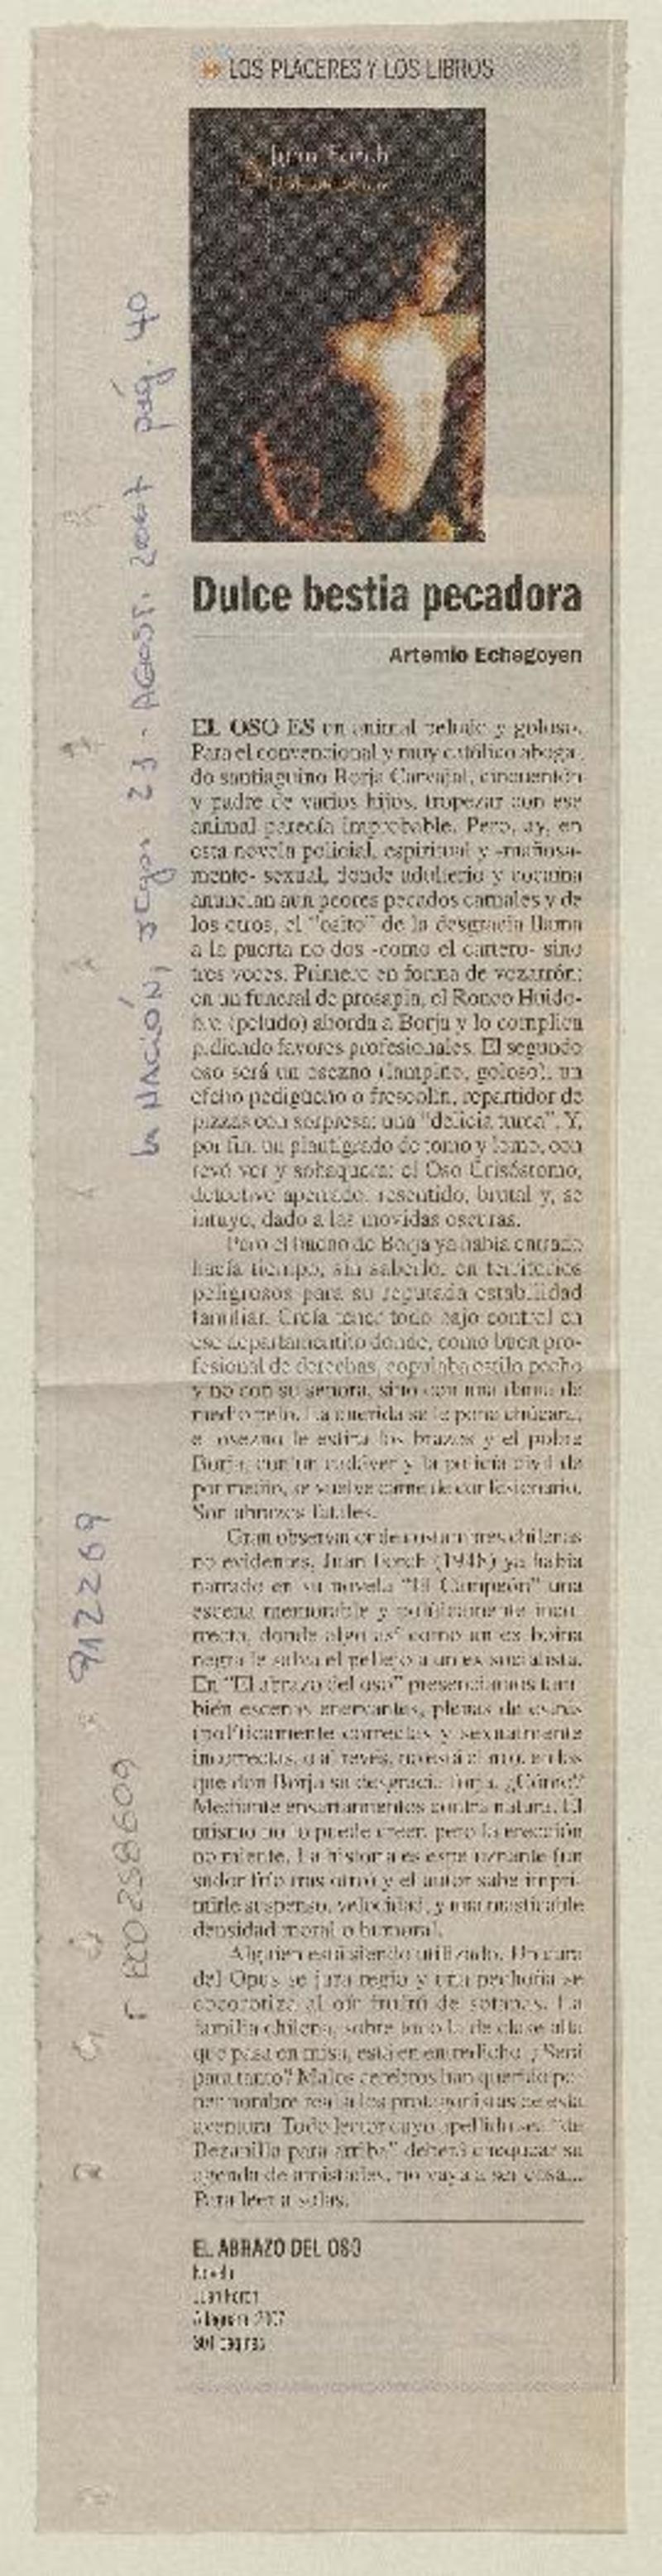 LOS PLACERES Y LOS LIBROS
Juan Forch
Dulce bestia pecadora
Artemio Echegoyen
EL OSO ES un animal peludo y goloso.
Para el convencional y muy católico aboga-
do santiaguino Borja Carvajal, cincuentón
y padre de varios hijos, tropezar con ese
animal parecía improbable. Pero, ay, en
esta novela policial, espiritual y -mañosa-
mente- sexual, donde adulterio y cocaína
anuncian aun peores pecados carnales y de
los otros, el "osito" de la desgracia llama
a la puerta no dos -como el cartero- sino
tres veces. Primero en forma de vozarrón:
en un funeral de prosapia, el Ronco Huido-
bro (peludo) aborda a Borja y lo complica
pidiendo favores profesionales. El segundo
oso será un osezno (lampiño, goloso), un
efebo pedigüeño o frescolín, repartidor de
pizzas con sorpresa: una "delicia turca". Y,
por fin, un plantígrado de tomo y lomo, con
revólver y sobaquera: el Oso Crisóstomo,
detective aperrado, resentido, brutal y, se
intuye, dado a las movidas oscuras.
Pero el bueno de Borja ya había entrado
hacía tiempo, sin saberlo, en territorios
peligrosos para su reputada estabilidad
familiar. Creía tener todo bajo control en
ese departamentito donde, como buen pro-
fesional de derechas, copulaba estilo pecho
y no con su señora, sino con una dama de
medio pelo. La querida se le pone chúcara,
el osezno le estira los brazos y el pobre
Borja, con un cadáver y la policía civil de
por medio, se vuelve carne de confesionario.
Son abrazos fatales.
Gran observador de costumbres chilenas
no evidentes, Juan Forch (1948) ya había
narrado en su novela "El Campeón" una
escena memorable y políticamente inco-
rrecta, donde algo así como un ex boina
negra le salva el pellejo a un ex socialista.
En "El abrazo del oso" presenciamos tam-
bién escenas enervantes, plenas de
(políticamente correctas y sexualmente
incorrectas, o al revés, no está claro, en las
que don Borja su desgracia forja. ¿Cómo?
Mediante ensartamientos contra natura. El
mismo no lo puede creer, pero la erección
no miente. La historia es espeluznante (un
sudor frío tras otro) y el autor sabe impri-
mirle suspenso, velocidad, y una masticable
densidad moral o humoral.
Alguien está siendo utilizado. Un cura
del Opus se jura regio y una pechoña se
cocorotiza al oír frufrú de sotanas. La
familia chilena, sobre todo la de clase alta
que pasa en misa, está en entredicho. ¿Será
para tanto? Malos cerebros han querido po-
ner nombre real a los protagonistas de esta
aventura. Todo lector cuyo apellido sea "de
Bezanilla para arriba" deberá chequear su
agenda de amistades, no vaya a ser cosa...
Para leer a solas.
EL ABRAZO DEL OSO
Novela
Juan Forch
Alfaguara, 2007
301 páginas
La NACIÓN, Stgo. 23 - AGOST. 2007 pág. 40
912269